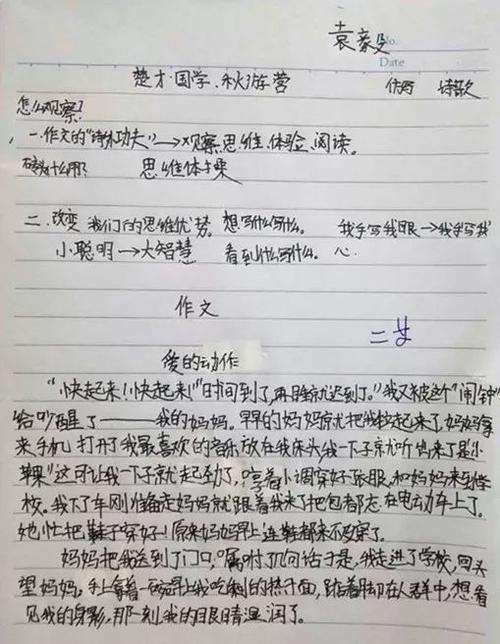 袁毅
No.
Date
楚才·国学·秋游营 作文 诗歌
怎么观察?
一.作文的"诗外功夫"→观察、思维、体验、阅读。
什么用? 思维体操
二.改变我们的思维优势。想写什么写什么。 我手写我眼→我手写我
小聪明→大智慧 看到什么写什么。 心
作文
二
爱的动作
"快起来!快起来!"时间到了,再睡就迟到了。"我又被这个"闹钟"
给吵醒了——我的妈妈。早早的妈妈就把我拉起来了,妈妈拿
来手机打开了我最喜欢的音乐放在我床头我一下子就听出来了是《小
苹果》这可让我一下子就起劲了,哼着小调穿好衣服,和妈妈来到学
校。我下了车刚准备走妈妈就跟着我来了把包都忘在电动车上了。
她忙把鞋子穿好!原来妈妈早上连鞋都来不及穿了。
妈妈把我送到了门口,嘱咐几句话于是,我走进了学校,回头
望妈妈。手上拿着一碗早上我吃剩的热干面,踮着脚却在人群中,想看
见我的身影,那一刻我的眼睛湿润了。